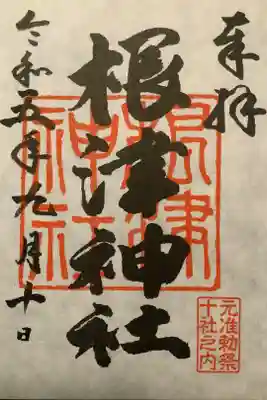 奉拝
元准勅祭
十社之内
根津神社
根津
神社
令和五年九月十日